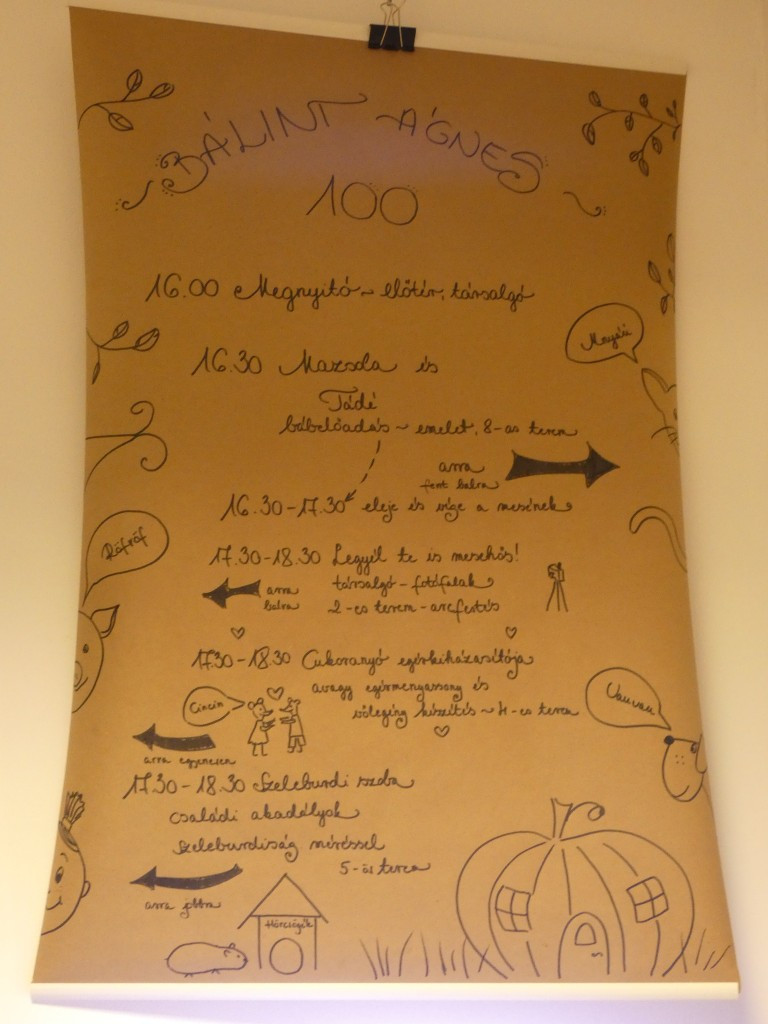 BÁLINT ÁGNES
100
16.00 Megnyitó ~ előtér, társalgó
16.30 Mazsola és
Tádé
bábelőadás ~ emelet, 8-as terem
arra
fent balra
16.30-17.30 eleje és vége a mesének
17.30-18.30 Legyél te is mesehős!
társalgó - fotófalak
arra
balra
2-es terem - arcfestés
17.30-18.30 Cukoranyó egérkiházasítója
avagy egérmenyasszony és
vőlegény készítés ~ 4-es terem
Cincin
arra egyenesen
17.30-18.30 Szeleburdi szoba
családi akadályok
szeleburdiság méréssel
5-ös terem
arra jobbra
Hörcsögék
Röfröf
Vauvau